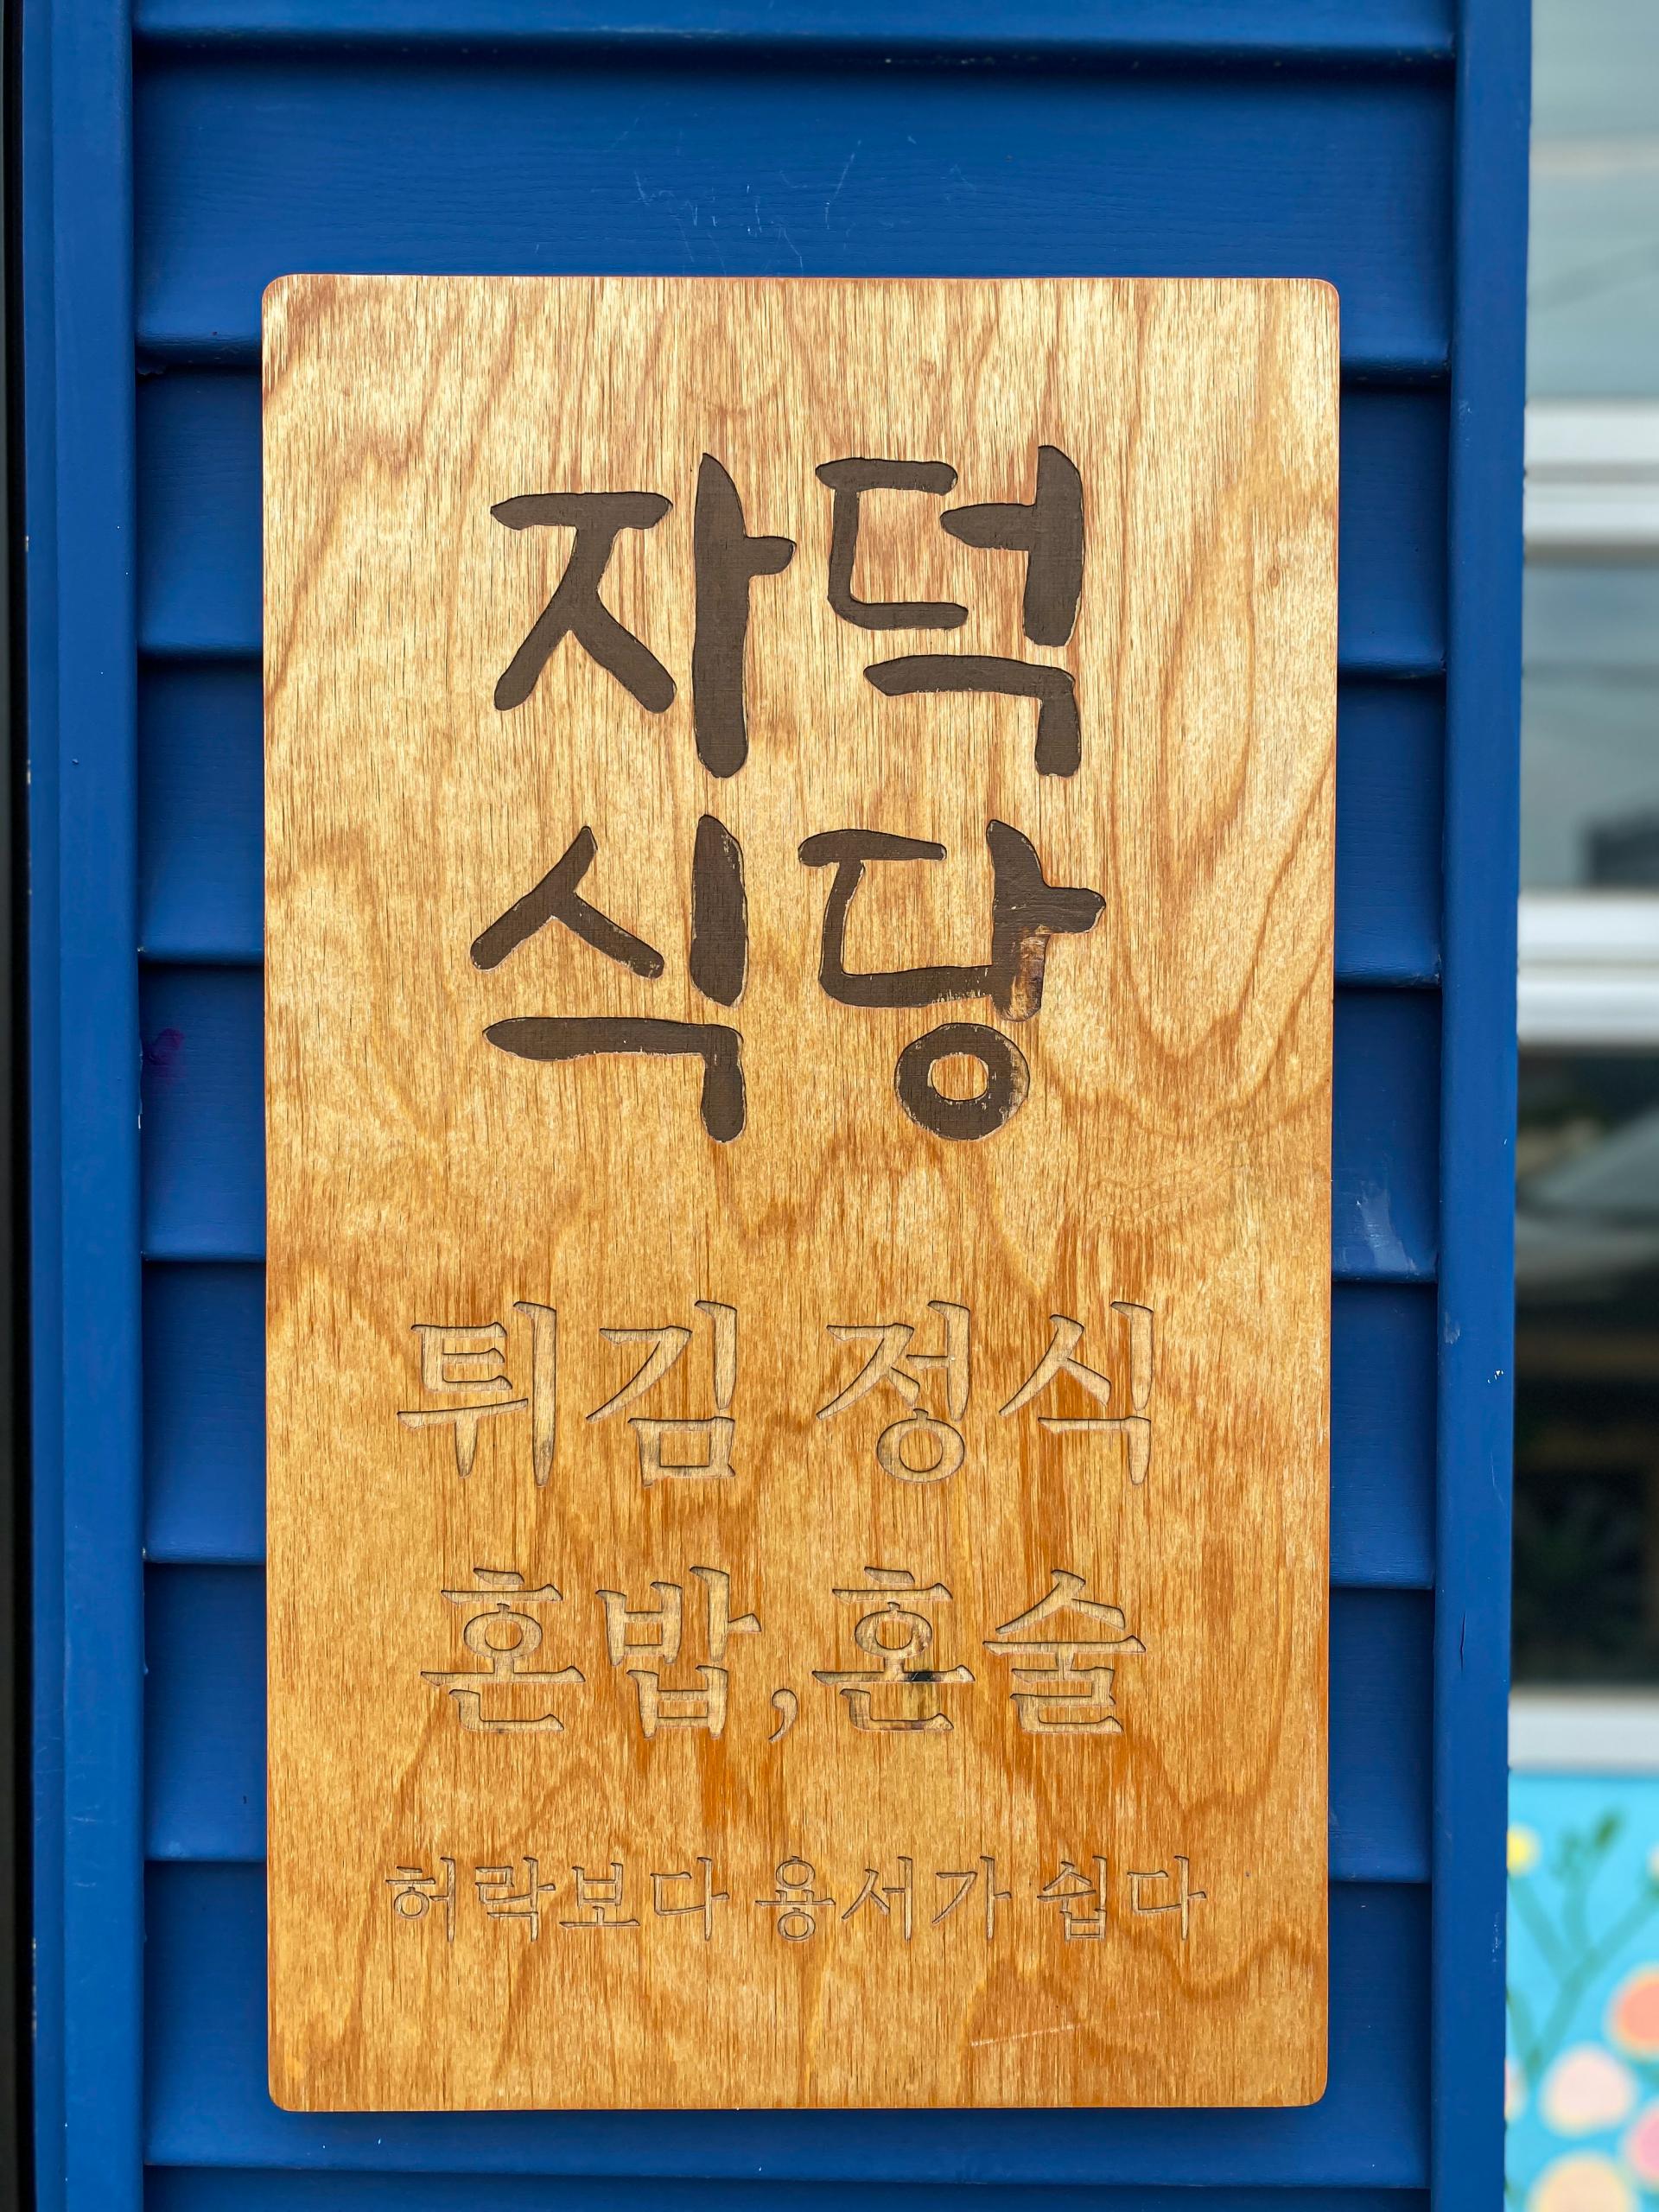 자덕
식당
튀김 정식
혼밥,혼술
허락보다 용서가 쉽다